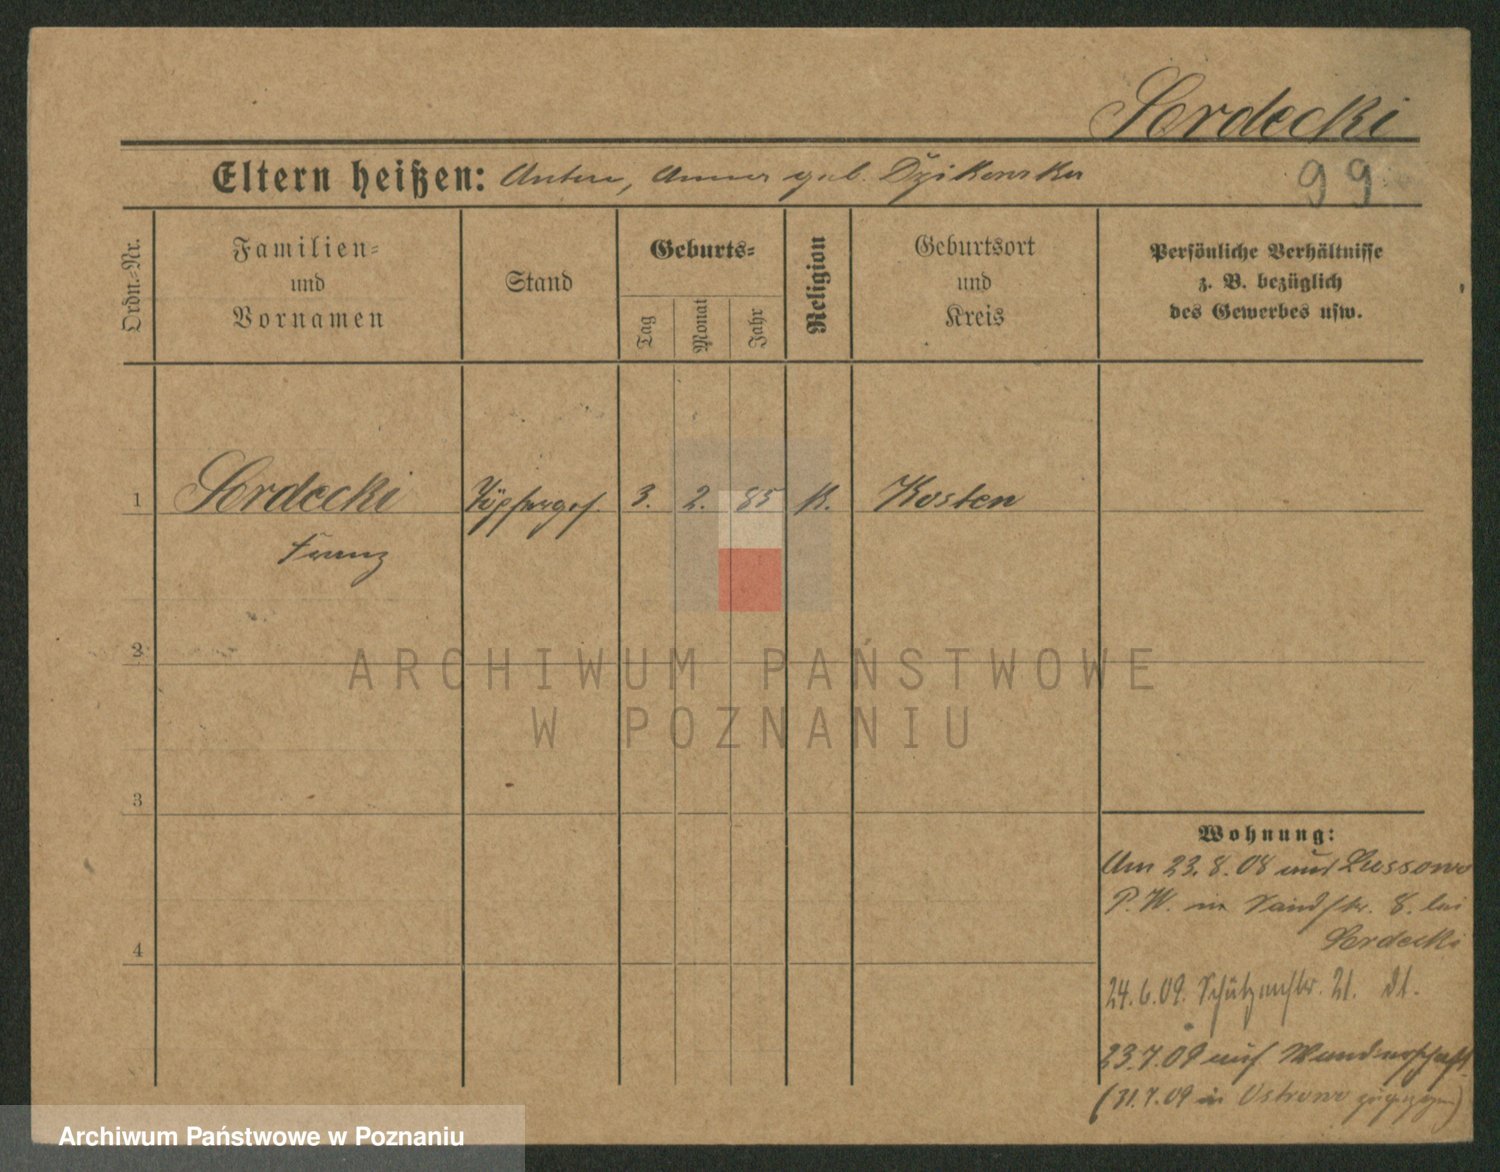 Serdecki
Eltern heißen: Anton, Anna geb. Dzikowska
99
Ordn.-Nr.
Familien-
und
Vornamen
Stand
Geburts-
Tag
Monat
Jahr
Religion
Geburtsort
und
Kreis
Persönliche Verhältnisse
z. B. bezüglich
des Gewerbes usw.
1
Serdecki
Töpferges.
3.
2.
85
K.
Kosten
Franz
2
ARCHIWUM PAŃSTWOWE
W POZNANIU
3
Wohnung:
Am 23.8.08 aus Lussowo
P. W. in Sandstr. 8. bei
Serdecki
4
24.6.09. Schützenstr. 21.
23.7.09 auf Wanderschaft
(31.7.09 in Ostrowo zugezogen)
Archiwum Państwowe w Poznaniu